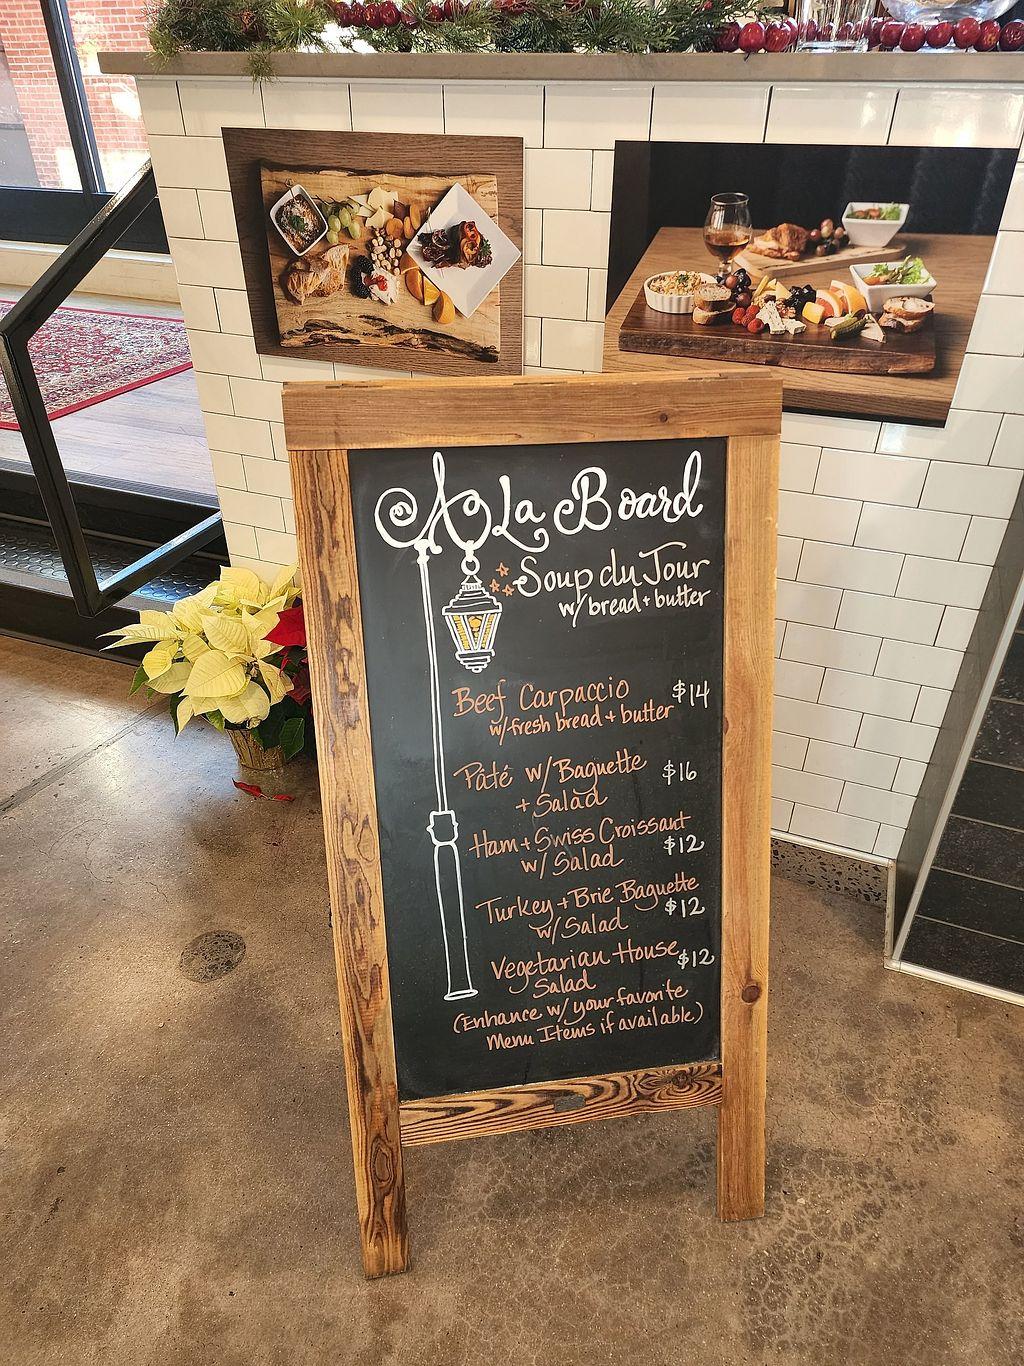 A La Board
Soup du Jour
w/ bread + butter
Beef Carpaccio $14
w/ fresh bread + butter
Pâté w/ Baguette $16
+ Salad
Ham + Swiss Croissant
w/ Salad $12
Turkey + Brie Baguette
w/ Salad $12
Vegetarian House $12
Salad
(Enhance w/ your favorite
Menu Items if available)